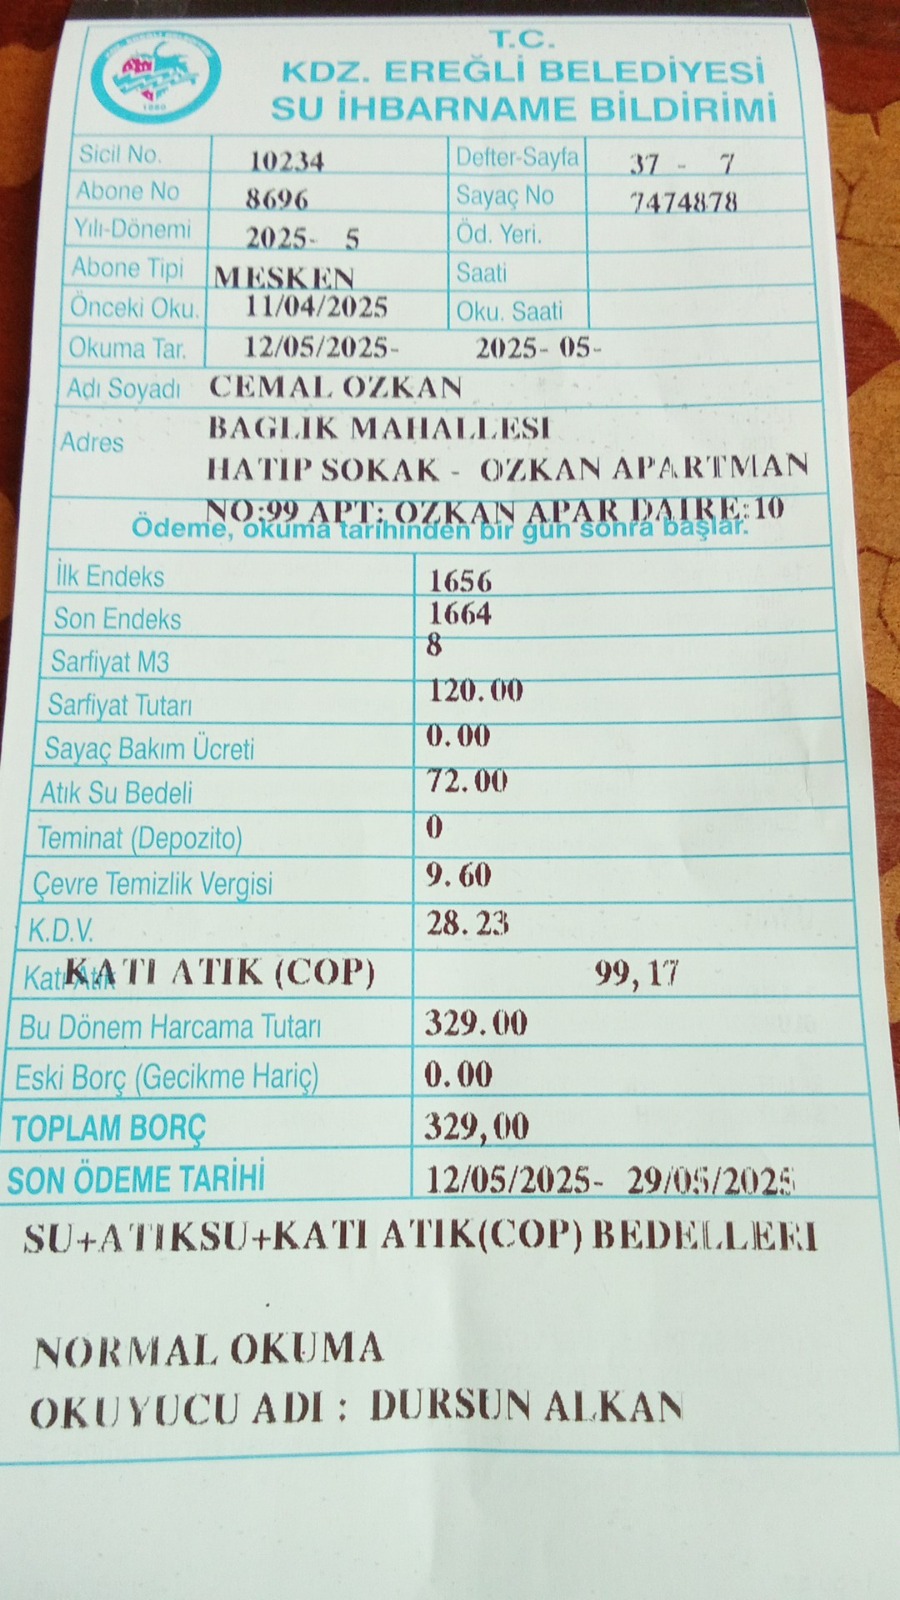 T.C.
KDZ. EREĞLİ BELEDİYESİ
SU İHBARNAME BİLDİRİMİ
Sicil No. 10234 Defter-Sayfa 37 - 7
Abone No 8696 Sayaç No 7474878
Yılı-Dönemi 2025- 5 Öd. Yeri.
Abone Tipi MESKEN Saati
Önceki Oku. 11/04/2025 Oku. Saati
Okuma Tar. 12/05/2025- 2025-05-
Adı Soyadı CEMAL OZKAN
Adres BAGLIK MAHALLESI
HATIP SOKAK - OZKAN APARTMAN
NO:99 APT: OZKAN APAR DAIRE:10
Ödeme, okuma tarihinden bir gün sonra başlar.
İlk Endeks 1656
Son Endeks 1664
Sarfiyat M3 8
Sarfiyat Tutarı 120.00
Sayaç Bakım Ücreti 0.00
Atık Su Bedeli 72.00
Teminat (Depozito) 0
Çevre Temizlik Vergisi 9.60
K.D.V. 28.23
Katı Atık KATI ATIK (COP) 99,17
Bu Dönem Harcama Tutarı 329.00
Eski Borç (Gecikme Hariç) 0.00
TOPLAM BORÇ 329,00
SON ÖDEME TARİHİ 12/05/2025- 29/05/2025
SU+ATIKSU+KATI ATIK(COP) BEDELLERI
NORMAL OKUMA
OKUYUCU ADI : DURSUN ALKAN